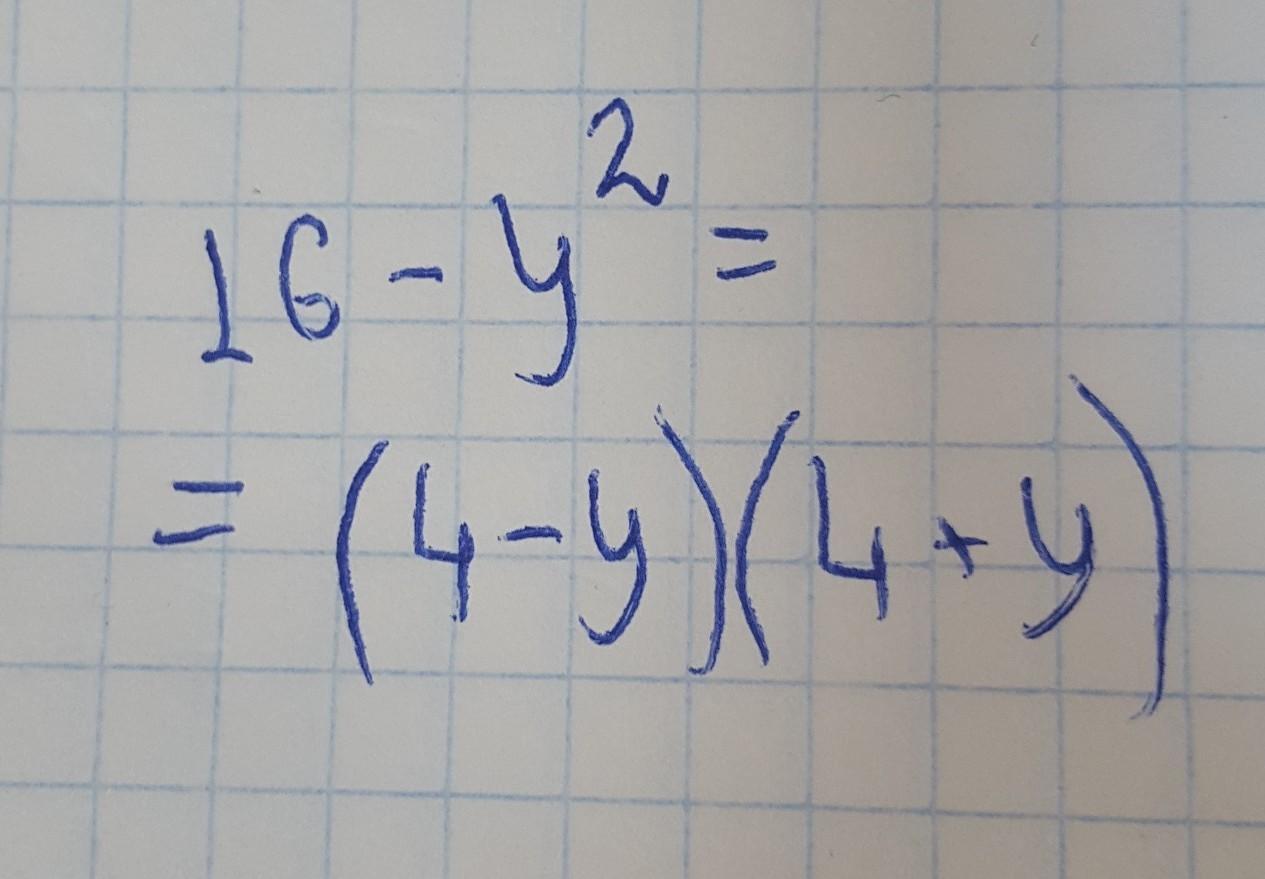 16 - y² =
= (4 - y)(4 + y)